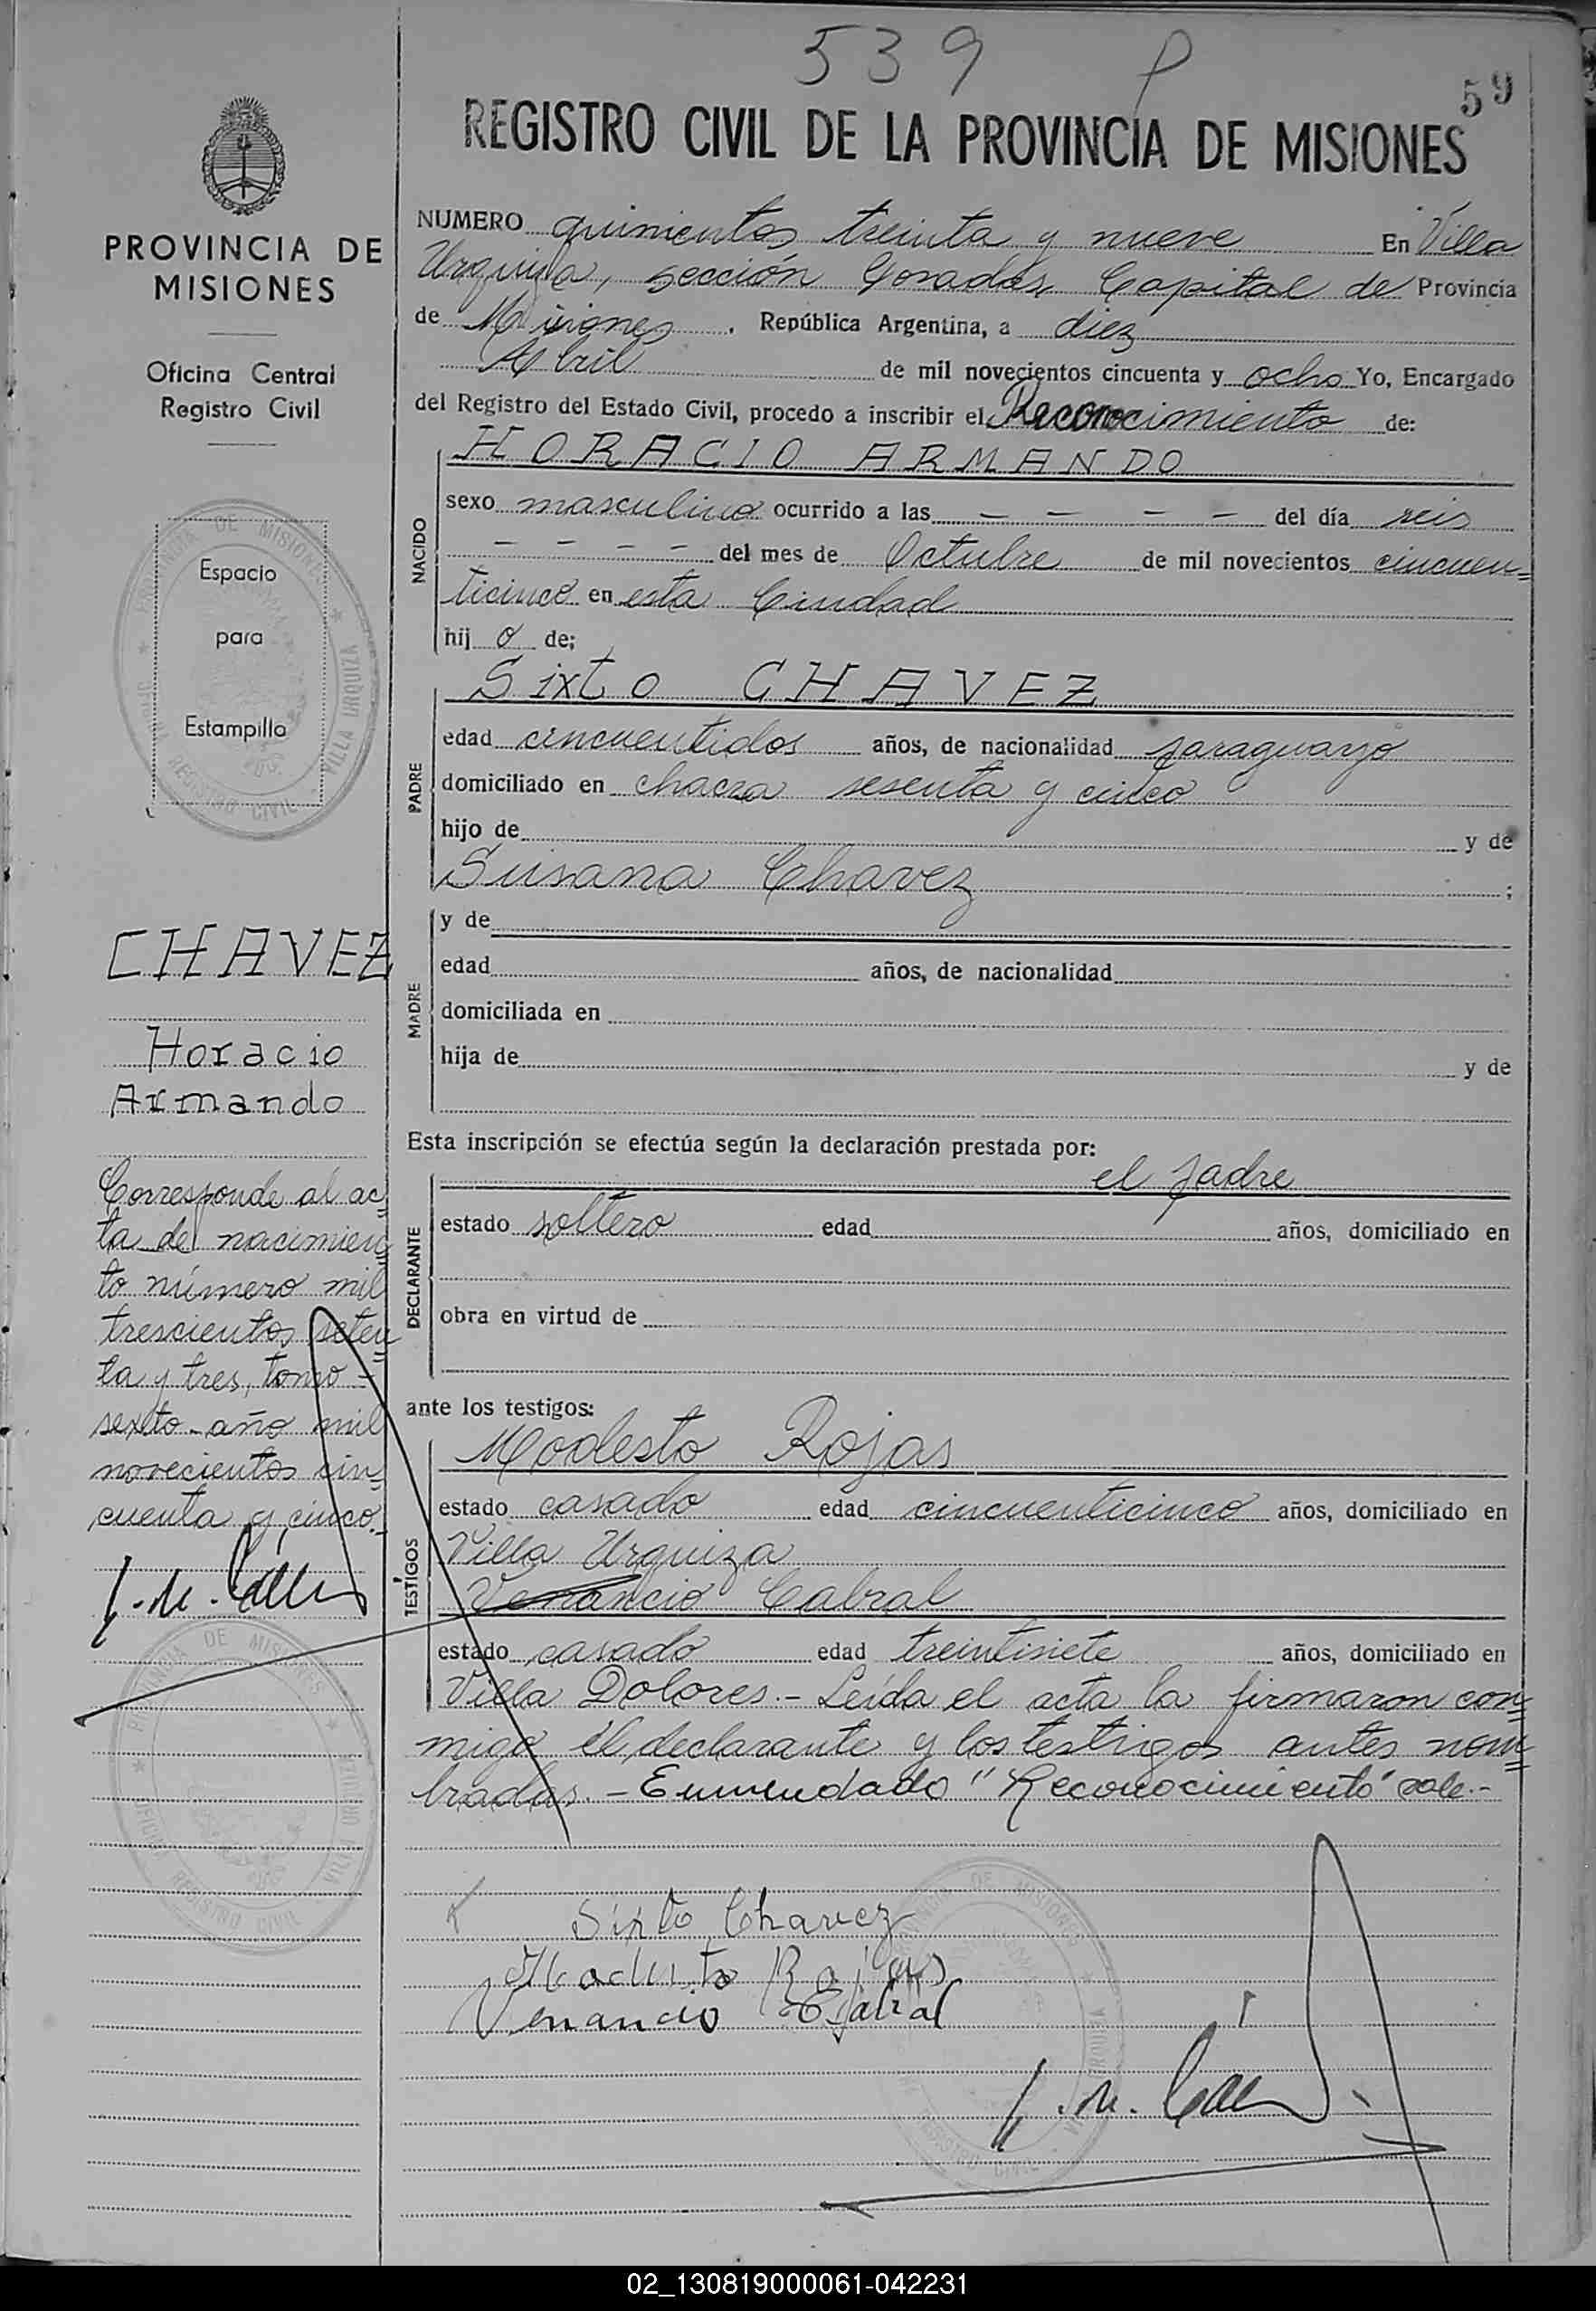 539 P
59
REGISTRO CIVIL DE LA PROVINCIA DE MISIONES
PROVINCIA DE
MISIONES
Oficina Central
Registro Civil
Espacio
para
Estampilla
CHAVEZ
Horacio
Armando
Corresponde al ac=
ta de nacimien=
to número mil
trescientos seten=
ta y tres, tomo -
sexto - año mil
novecientos cin=
cuenta y cinco.
PROVINCIA DE MISIONES
OFICINA REGISTRO CIVIL
VILLA URQUIZA
NUMERO quinientos treinta y nueve En Villa
Urquiza, sección Posadas, Capital de Provincia
de Misiones. República Argentina, a diez
Abril de mil novecientos cincuenta y ocho Yo, Encargado
del Registro del Estado Civil, procedo a inscribir el Reconocimiento de:
NACIDO
HORACIO ARMANDO
sexo masculino ocurrido a las - - - - del día seis
- - - - del mes de Octubre de mil novecientos cincuen=
ticinco en esta Ciudad
hij o de;
PADRE
Sixto CHAVEZ
edad cincuentidos años, de nacionalidad paraguayo
domiciliado en chacra sesenta y cinco
hijo de y de
Susana Chavez ;
MADRE
y de
edad años, de nacionalidad
domiciliada en
hija de y de
Esta inscripción se efectúa según la declaración prestada por:
DECLARANTE
el padre
estado soltero edad años, domiciliado en
obra en virtud de
ante los testigos:
TESTIGOS
Modesto Rojas
estado casado edad cincuenticinco años, domiciliado en
Villa Urquiza
Venancio Cabral
estado casado edad treintisiete años, domiciliado en
Villa Dolores.- Leída el acta la firmaron con=
migo el declarante y los testigos antes nom=
brados. - Enmendado "Reconocimiento" vale.-
Sixto Chavez
Modesto Rojas
Venancio Cabral
02_130819000061-042231